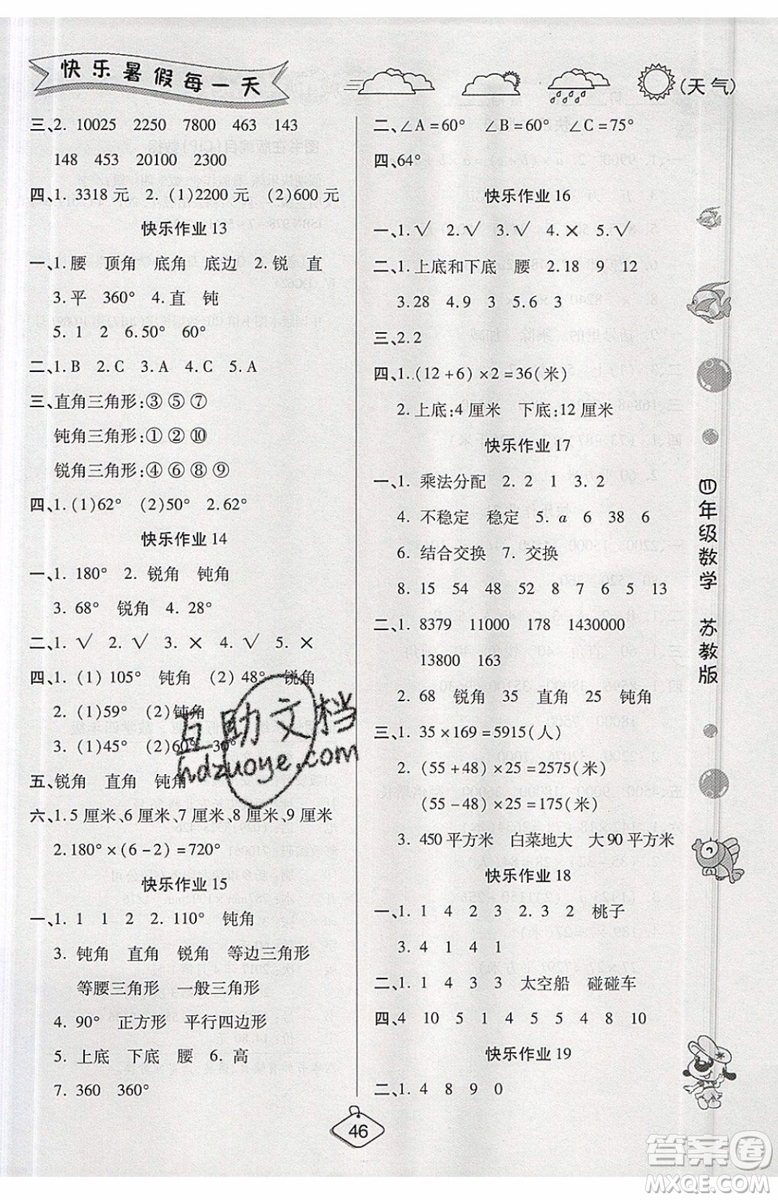 快乐暑假每一天
(天气)
三、2. 10025 2250 7800 463 143
148 453 20100 2300
四、1. 3318 元 2. (1)2200 元 (2)600 元
快乐作业 13
一、1. 腰 顶角 底角 底边 2. 锐 直
3. 平 360° 4. 直 钝
5. 1 2 6. 50° 60°
二、1. B 2. C 3. A 4. C 5. C
三、直角三角形:③ ⑤ ⑦
钝角三角形:① ② ⑩
锐角三角形:④ ⑥ ⑧ ⑨
四、1. (1)62° (2)51° 2. 62°
快乐作业 14
一、1. 180° 2. 锐角 钝角
3. 68° 锐角 4. 28°
二、1. √ 2. √ 3. × 4. × 5. √
四、1. (1) 105° 钝角 (2) 48° 锐角
2. (1)59° (2)钝角
3. (1)45° (2)60° 30°
五、锐角 直角 钝角
六、1. 5 厘米、6 厘米、7 厘米、8 厘米、9 厘米
2. 180°×(6-2)=720°
快乐作业 15
一、1. 1 1 2 2. 110° 钝角
3. 钝角 直角 锐角 等边三角形
等腰三角形 一般三角形
4. 90° 正方形 平行四边形
5. 上底 下底 腰 6. 高
7. 360 360°
二、∠A=60° ∠B=60° ∠C=75°
四、64°
快乐作业 16
一、1. √ 2. √ 3. √ 4. × 5. √
二、1. 上底和下底 腰 2. 18 9 12
3. 28 4. 9 3 5. 6 3
三、2. 2
四、1. (12+6)×2=36(米)
2. 上底:4 厘米 下底:12 厘米
快乐作业 17
一、1. 乘法分配 2. 2 1 3. 2
4. 不稳定 稳定 5. a 6 38 6
6. 结合交换 7. 交换
8. 15 54 48 52 8 7 13 5
二、1. 8379 11000 178 1430000
13800 163
2. 68 锐角 35 直角 25 钝角
三、1. 35×169=5915(人)
2. (55+48)×25=2575(米)
(55-48)×25=175(米)
3. 450 平方米 白菜地大 大 90 平方米
快乐作业 18
一、1. 1 4 2 3 2. 3 2 1 桃子
3. 4 1 4 1
二、1. 1 4 3 3 太空船 碰碰车
四、4 10 5 1 4 5 4 5 8 10
快乐作业 19
二、1. 4 8 9 0
四年级数学 苏教版
46
互助文档
hdzuoye.com
答案圈
MXQE.COM